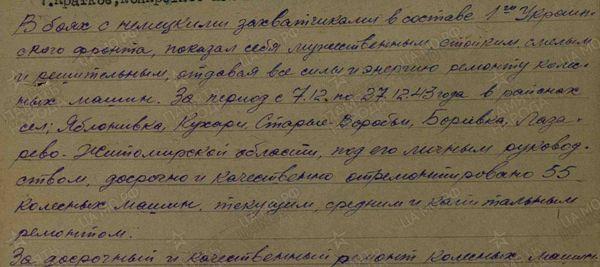 В боях с немецкими захватчиками в составе 1го Украин-
ского фронта, показал себя мужественным, стойким, смелым
и решительным, отдавая все силы и энергию ремонту колес-
ных машин. За период с 7.12. по 27.12.43 года в районах
сел; Яблонивка, Кухари, Старые-Воробьи, Боривка, Лаза-
рево-Житомирской области, под его личным руковод-
ством, досрочно и качественно отремонтировано 55
колесных машин, текущим, средним и капитальным
ремонтом.
За досрочный и качественный ремонт колесных машин